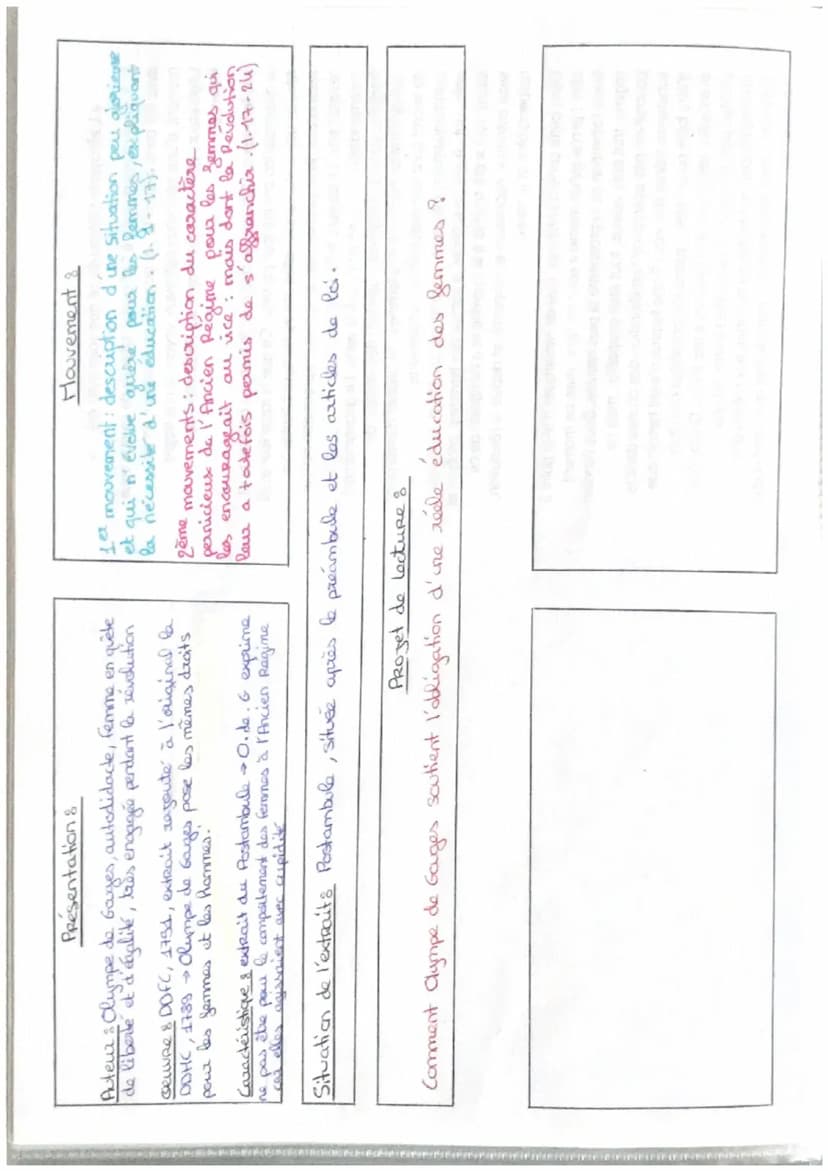 Présentation :
Auteur : Olympe de Gouges, autodidacte, femme en quête
de liberté et d'égalité, très engagée pendant la révolution
œuvre : DDFC, 1791, extrait rajouté à l'original la
DDHC, 1789 → Olympe de Gouges pose les mêmes droits
pour les femmes et les hommes.
Caractéristique : extrait du Postambule → O. de. G exprime
ne pas être pour le comportement des femmes à l'Ancien Régime
car elles agissaient avec cupidité
Mouvement :
1er mouvement : description d'une situation peu glorieuse
et qui n'évolue guère pour les femmes, expliquant
la nécessité d'une éducation (l. 9 - 17).
2ème mouvements : description du caractère
pernicieux de l'Ancien Régime pour les femmes qui
les encourageait au vice : mais dont la Révolution
leur a toutefois permis de s'affranchir. (l. 17 - 24)
Situation de l'extrait : Postambule, située après le préambule et les articles de loi.
Projet de lecture :
Comment Olympe de Gouges soutient l'obligation d'une réelle éducation des femmes ?